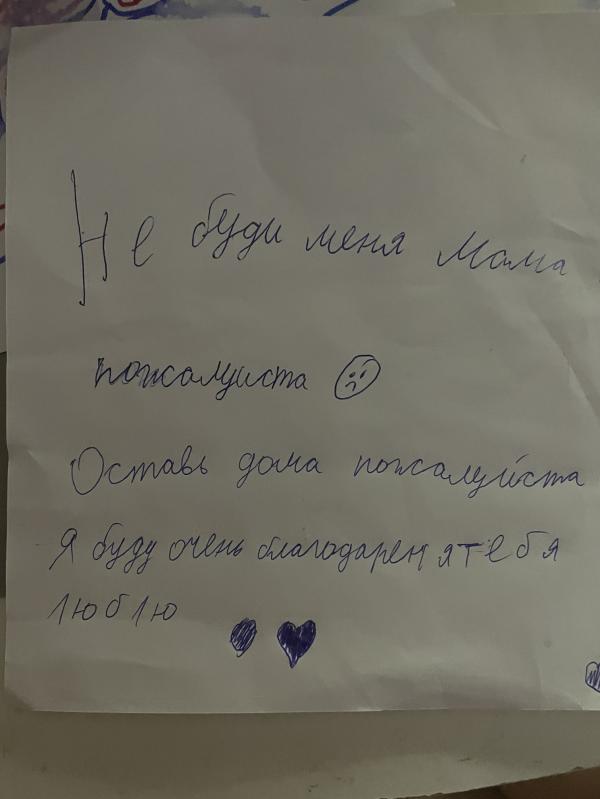 Не буди меня мама
пожалуиста
Оставь дома пожалуйста
Я буду очень благодарен я тебя
люблю